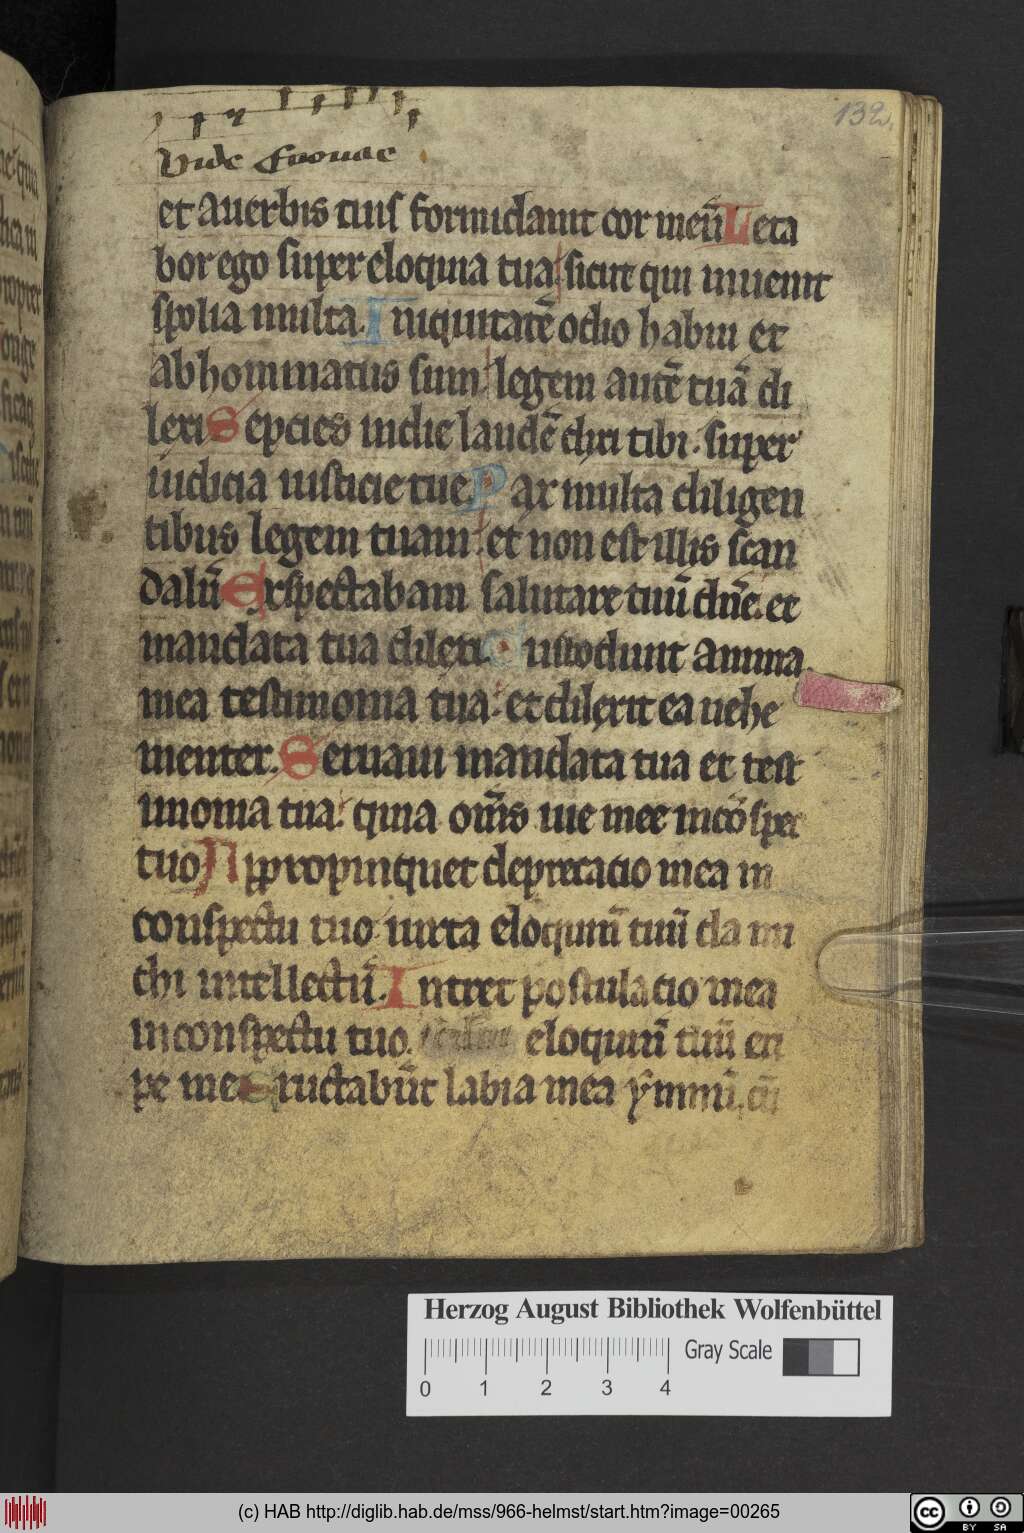 132
Vide Euouae
et a uerbis tuis formidauit cor meū Leta
bor ego super eloquia tua. sicut qui inuenit
spolia multa. Iniquitatē odio habui et
abhominatus sum. legem autē tuā di
lexi Sepcies in die laudē dixi tibi. super
iudicia iusticie tue. Pax multa diligen
tibus legem tuam. et non est illis scan
dalū Exspectabam salutare tuū dn̄e. et
mandata tua dilexi. Custodiuit anima
mea testimonia tua. et dilexit ea uehe
menter. Seruaui mandata tua et test
imonia tua. quia om̄s uie mee in cōspec
tuo Appropinquet deprecacio mea in
conspectu tuo iuxta eloquiū tuū da mi
chi intellectū. Intret postulacio mea
in conspectu tuo. eloquiū tuū eri
pe me Eructabūt labia mea ymnū. cū
Herzog August Bibliothek Wolfenbüttel
Gray Scale
0 1 2 3 4
(c) HAB http://diglib.hab.de/mss/966-helmst/start.htm?image=00265
cc BY SA